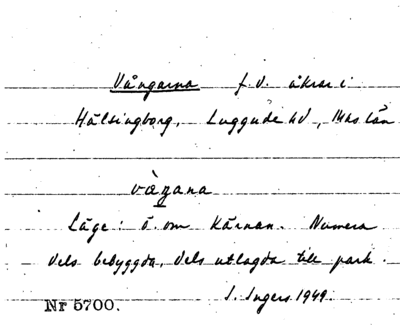 Vångarna f.d. åkrar i
Hälsingborg, Luggude hd, Mhs län
vàŋana
Läge: ö. om Kärnan. Numera
dels bebyggda, dels utlagda till park.
I. Ingers 1949.
Nr 5700.